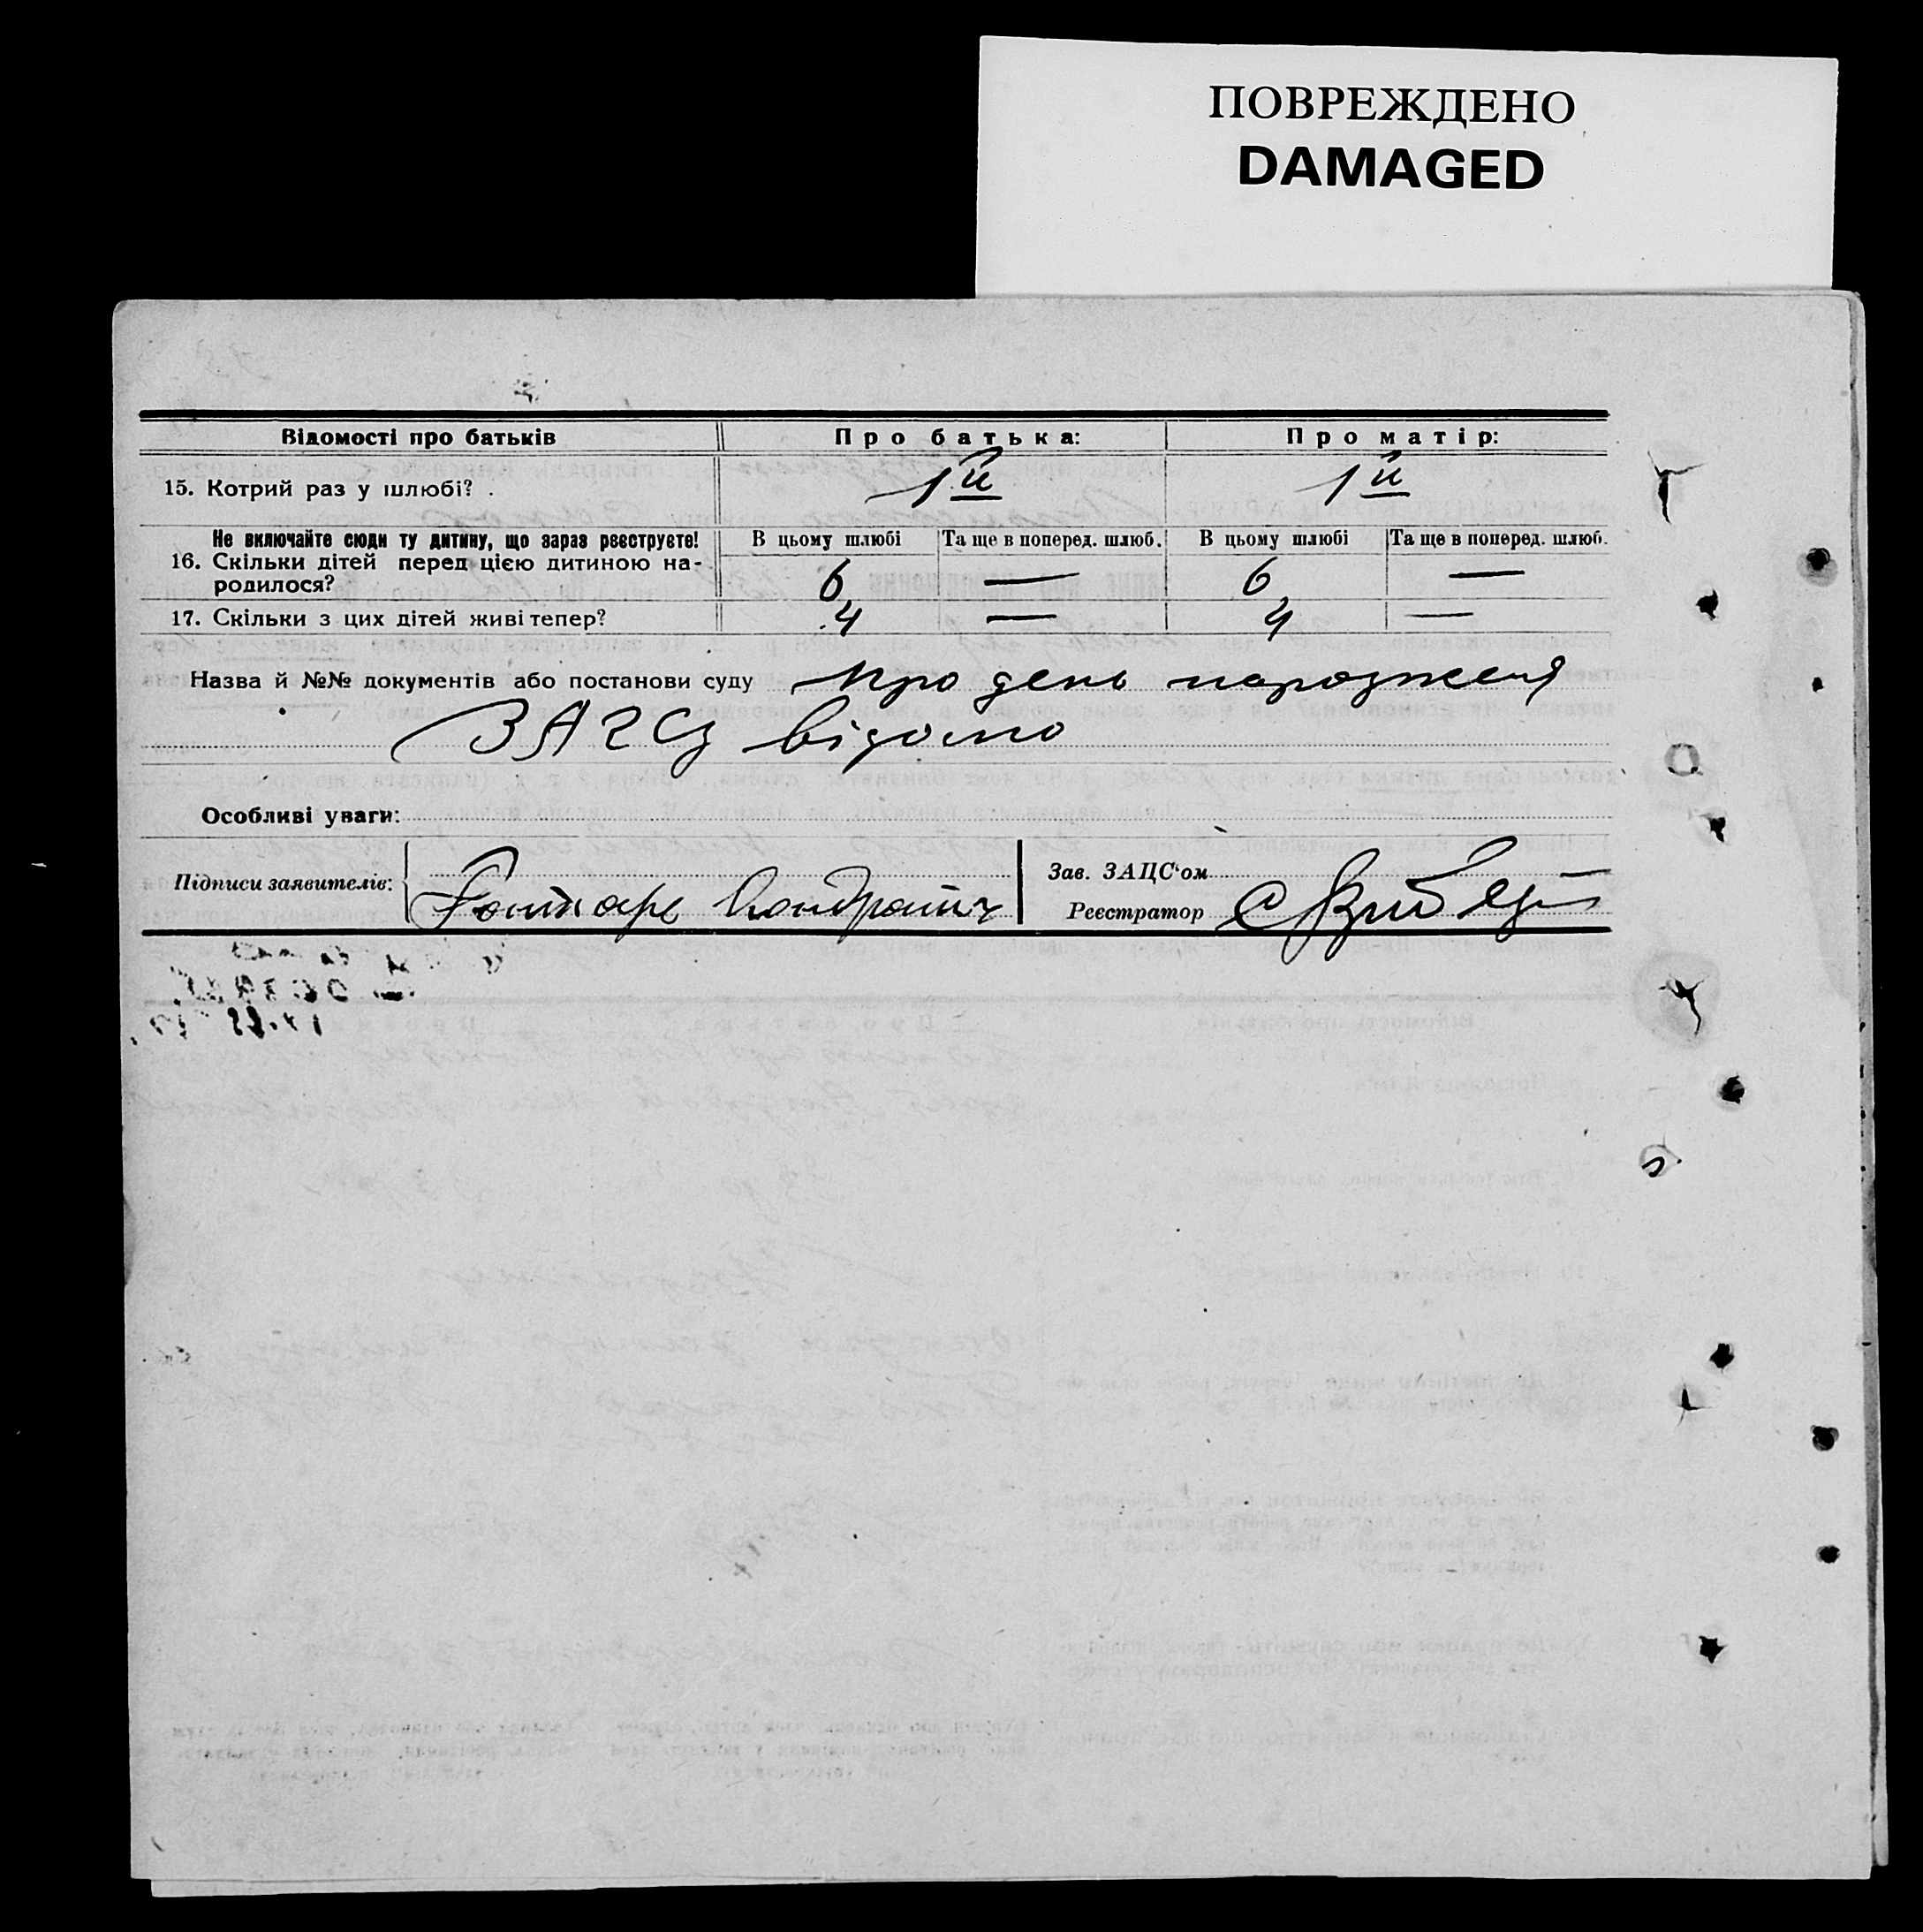 ПОВРЕЖДЕНО
DAMAGED
Відомості про батьків Про батька: Про матір:
15. Котрий раз у шлюбі? . 1й 1й
Не включайте сюди ту дитину, що зараз реєструєте! В цьому шлюбі Та ще в поперед. шлюб. В цьому шлюбі Та ще в поперед. шлюб.
16. Скільки дітей перед цією дитиною на-
родилося? 6 — 6 —
17. Скільки з цих дітей живі тепер? 4 — 4 —
Назва й №№ документів або постанови суду про день народження
ЗАГСу відомо
Особливі уваги:
Підписи заявителів:
Зав. ЗАЦС'ом
Реєстратор